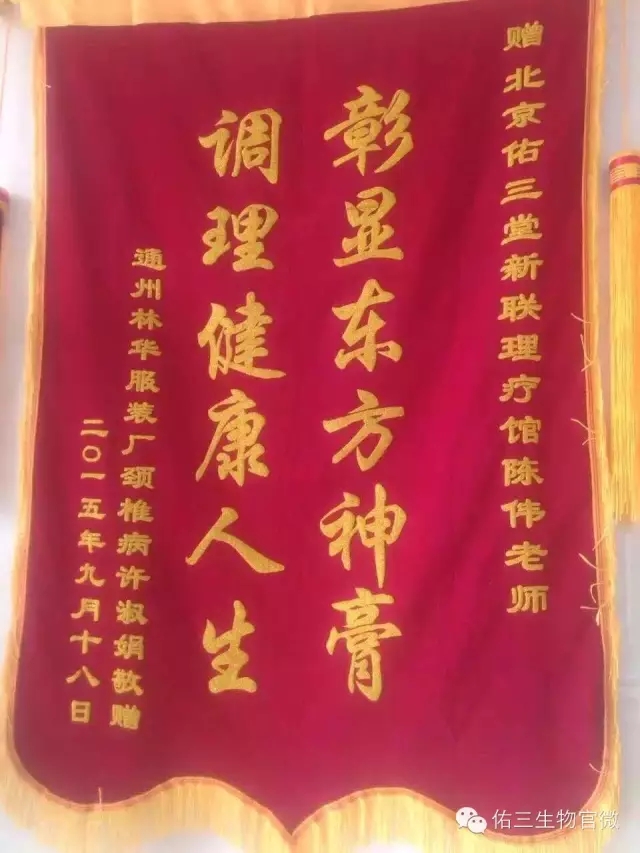 赠北京佑三堂新联理疗馆陈伟老师
彰显东方神膏
调理健康人生
通州林华服装厂颈椎病许淑娟敬赠
二〇一五年九月十八日
佑三生物官微